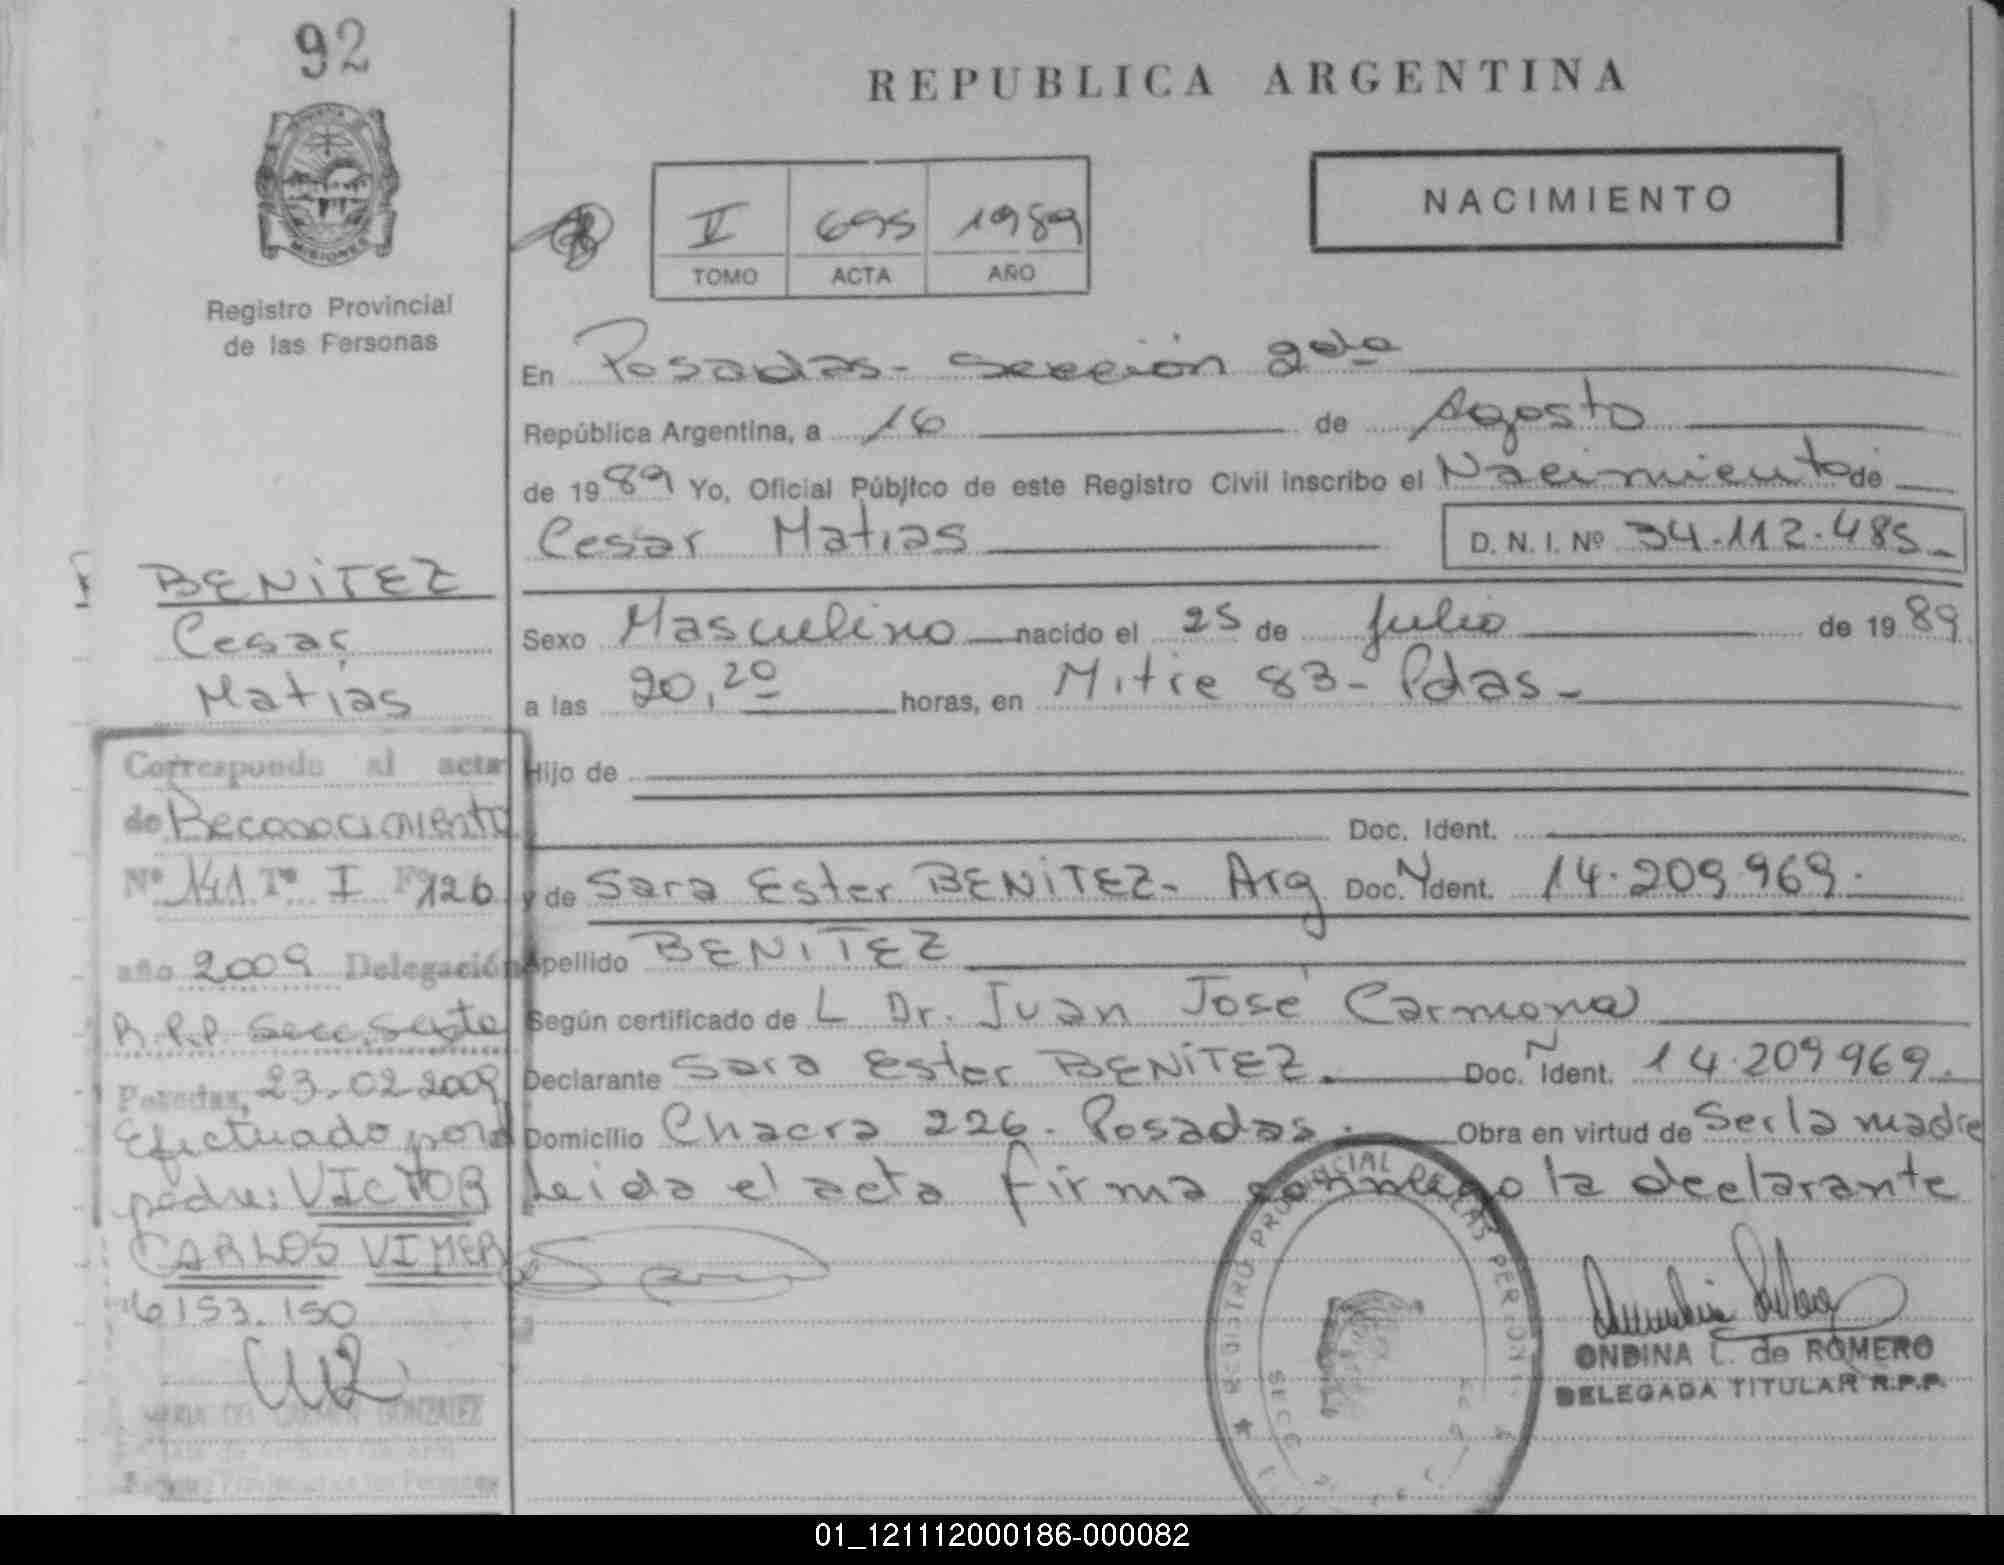 92
REPUBLICA ARGENTINA
MISIONES
Registro Provincial
de las Personas
II 695 1989
TOMO ACTA AÑO
NACIMIENTO
En Posadas - Sección 2da
República Argentina, a 16 de Agosto
de 1989 Yo, Oficial Público de este Registro Civil inscribo el Nacimiento de
Cesar Matias D. N. I. Nº 34.112.485
Sexo Masculino nacido el 25 de Julio de 1989
a las 20,20 horas, en Mitre 83 - Pdas -
Hijo de
Doc. Ident.
y de Sara Ester BENITEZ - Arg Doc. N Ident. 14.209.969.
Apellido BENITEZ
Según certificado de L Dr. Juan José Carmona
Declarante Sara Ester BENITEZ. Doc. N Ident. 14.209.969.
Domicilio Chacra 226. Posadas. Obra en virtud de Ser la madre
Leida el acta firma conmigo la declarante
BENITEZ
Cesar
Matías
Corresponde al acta
de Reconocimiento
Nº 141 Tº I Fº 126
año 2009 Delegación
R.P.P. Secc. Sexta
Posadas, 23-02-2009
Efectuado por el
padre: VICTOR
CARLOS VIMER
6153.150
MARIA DEL CARMEN GONZALEZ
Registro Provincial de las Personas
REGISTRO PROVINCIAL DE LAS PERSONAS
ONDINA L. de ROMERO
DELEGADA TITULAR R.P.P.
01_121112000186-000082